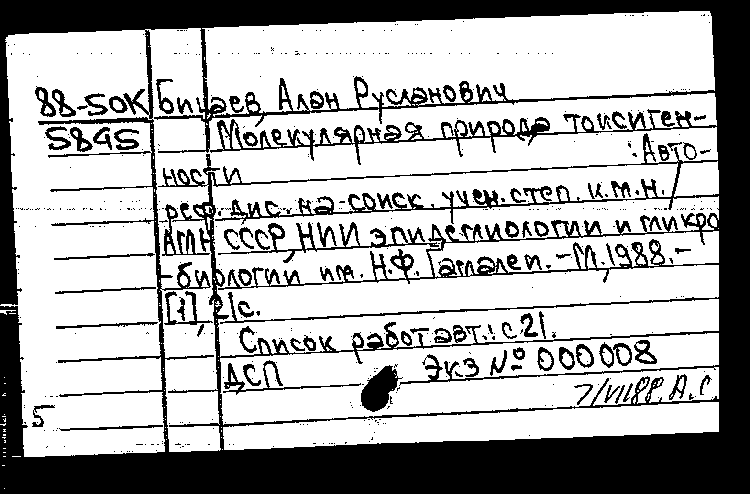 88-50К Бицаев, Алан Русланович
5845 Молекулярная природа токсиген-
ности : Авто-
реф. дис. на соиск. учен. степ. к.м.н. /
АМН СССР, НИИ эпидемиологии и микро
-биологии им. Н.Ф. Гамалеи. - М., 1988. -
[1], 21с.
Список работ авт.: с.21.
ДСП Экз № 000008
7/VII88. А.С.
5